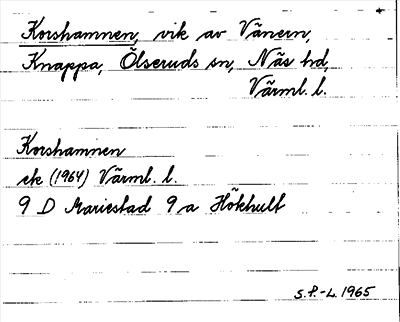 Korshamnen, vik av Vänern,
Knappa, Ölseruds sn, Näs hd,
Värml. l.
Korshamnen
ek (1964) Värml. l.
9 D Mariestad 9 a Hökhult
S.P.-L. 1965